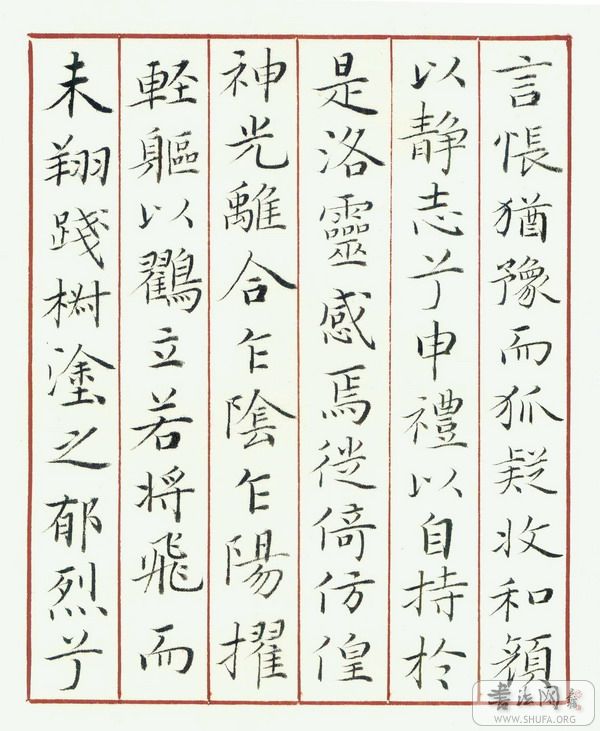 言悵猶豫而狐疑收和顏
以静志兮申禮以自持於
是洛靈感焉徙倚仿偟
神光離合乍陰乍陽擢
軽軀以鸛立若将飛而
未翔踐椒塗之郁烈兮
書法网
WWW.SHUFA.ORG